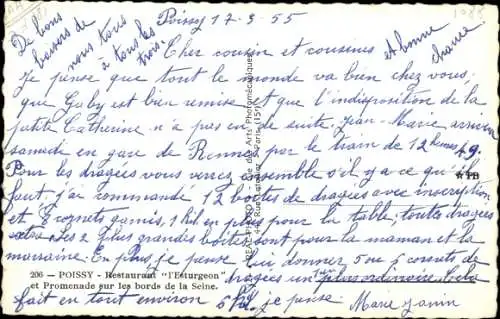 Poissy 17-3-55
De bons
baisers de
nous tous
à tous les
trois.
et bonne
chance
Cher cousin et cousines
Je pense que tout le monde va bien chez vous
que Gaby est bien remise et que l'indisposition de la
petite Catherine n'a pas eu de suite. Jean-Marie arrivera
samedi en gare de Rennes par le train de 12 heures 49.
Pour les dragées vous verrez ensemble s'il y a ce qu'il
faut, j'ai commandé 12 boîtes de dragées avec inscription
et 7 cornets garnis, 1 kil en plus pour la table, toutes dragées
extra. Les 2 plus grandes boîtes sont pour la maman et la
marraine. En plus je pense lui donner 5 ou 6 cornets de
dragées un plus ordinaire. Cela
fait en tout environ je pense Marie
206 — POISSY - Restaurant "l'Esturgeon"
et Promenade sur les bords de la Seine.